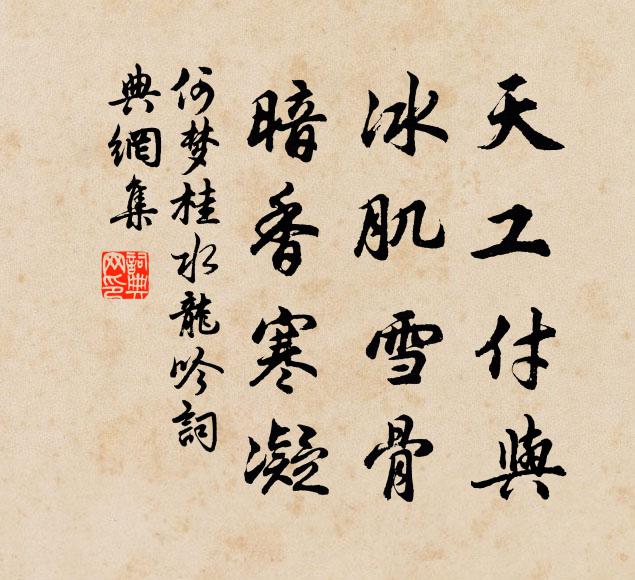 天工付與
冰肌雪骨
暗香寒凝
何梦桂水龍吟詞
典網集
詞典网印